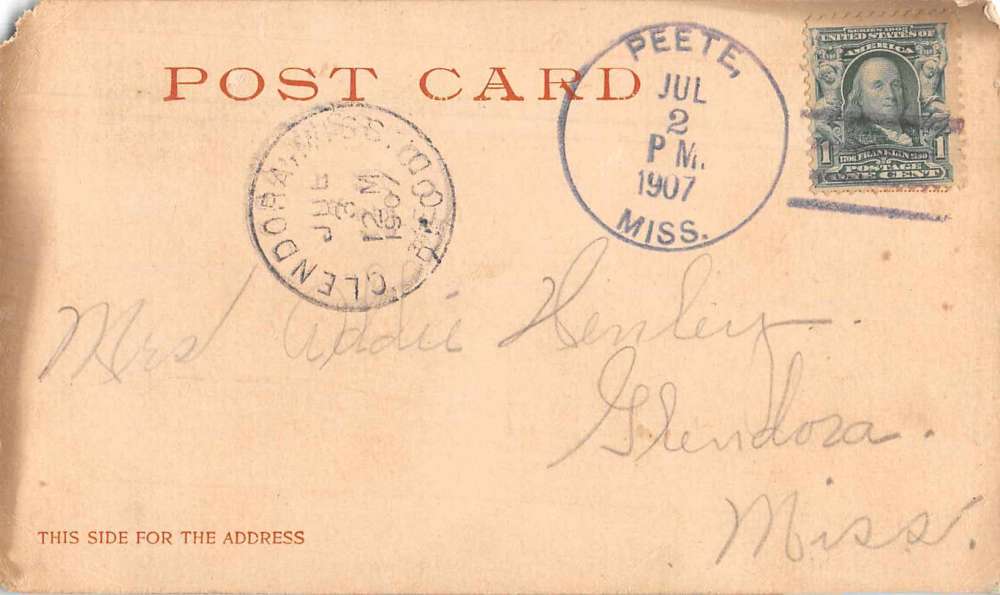 POST CARD
PEETE,
JUL
2
P M.
1907
MISS.
SERIES 1902
UNITED STATES OF
AMERICA
1706 FRANKLIN 1790
1 POSTAGE 1
ONE CENT
GLENDORA, MISS.
JUL
3
12 M
1907
REC'D
Mrs Addie Henley.
Glendora.
Miss.
THIS SIDE FOR THE ADDRESS